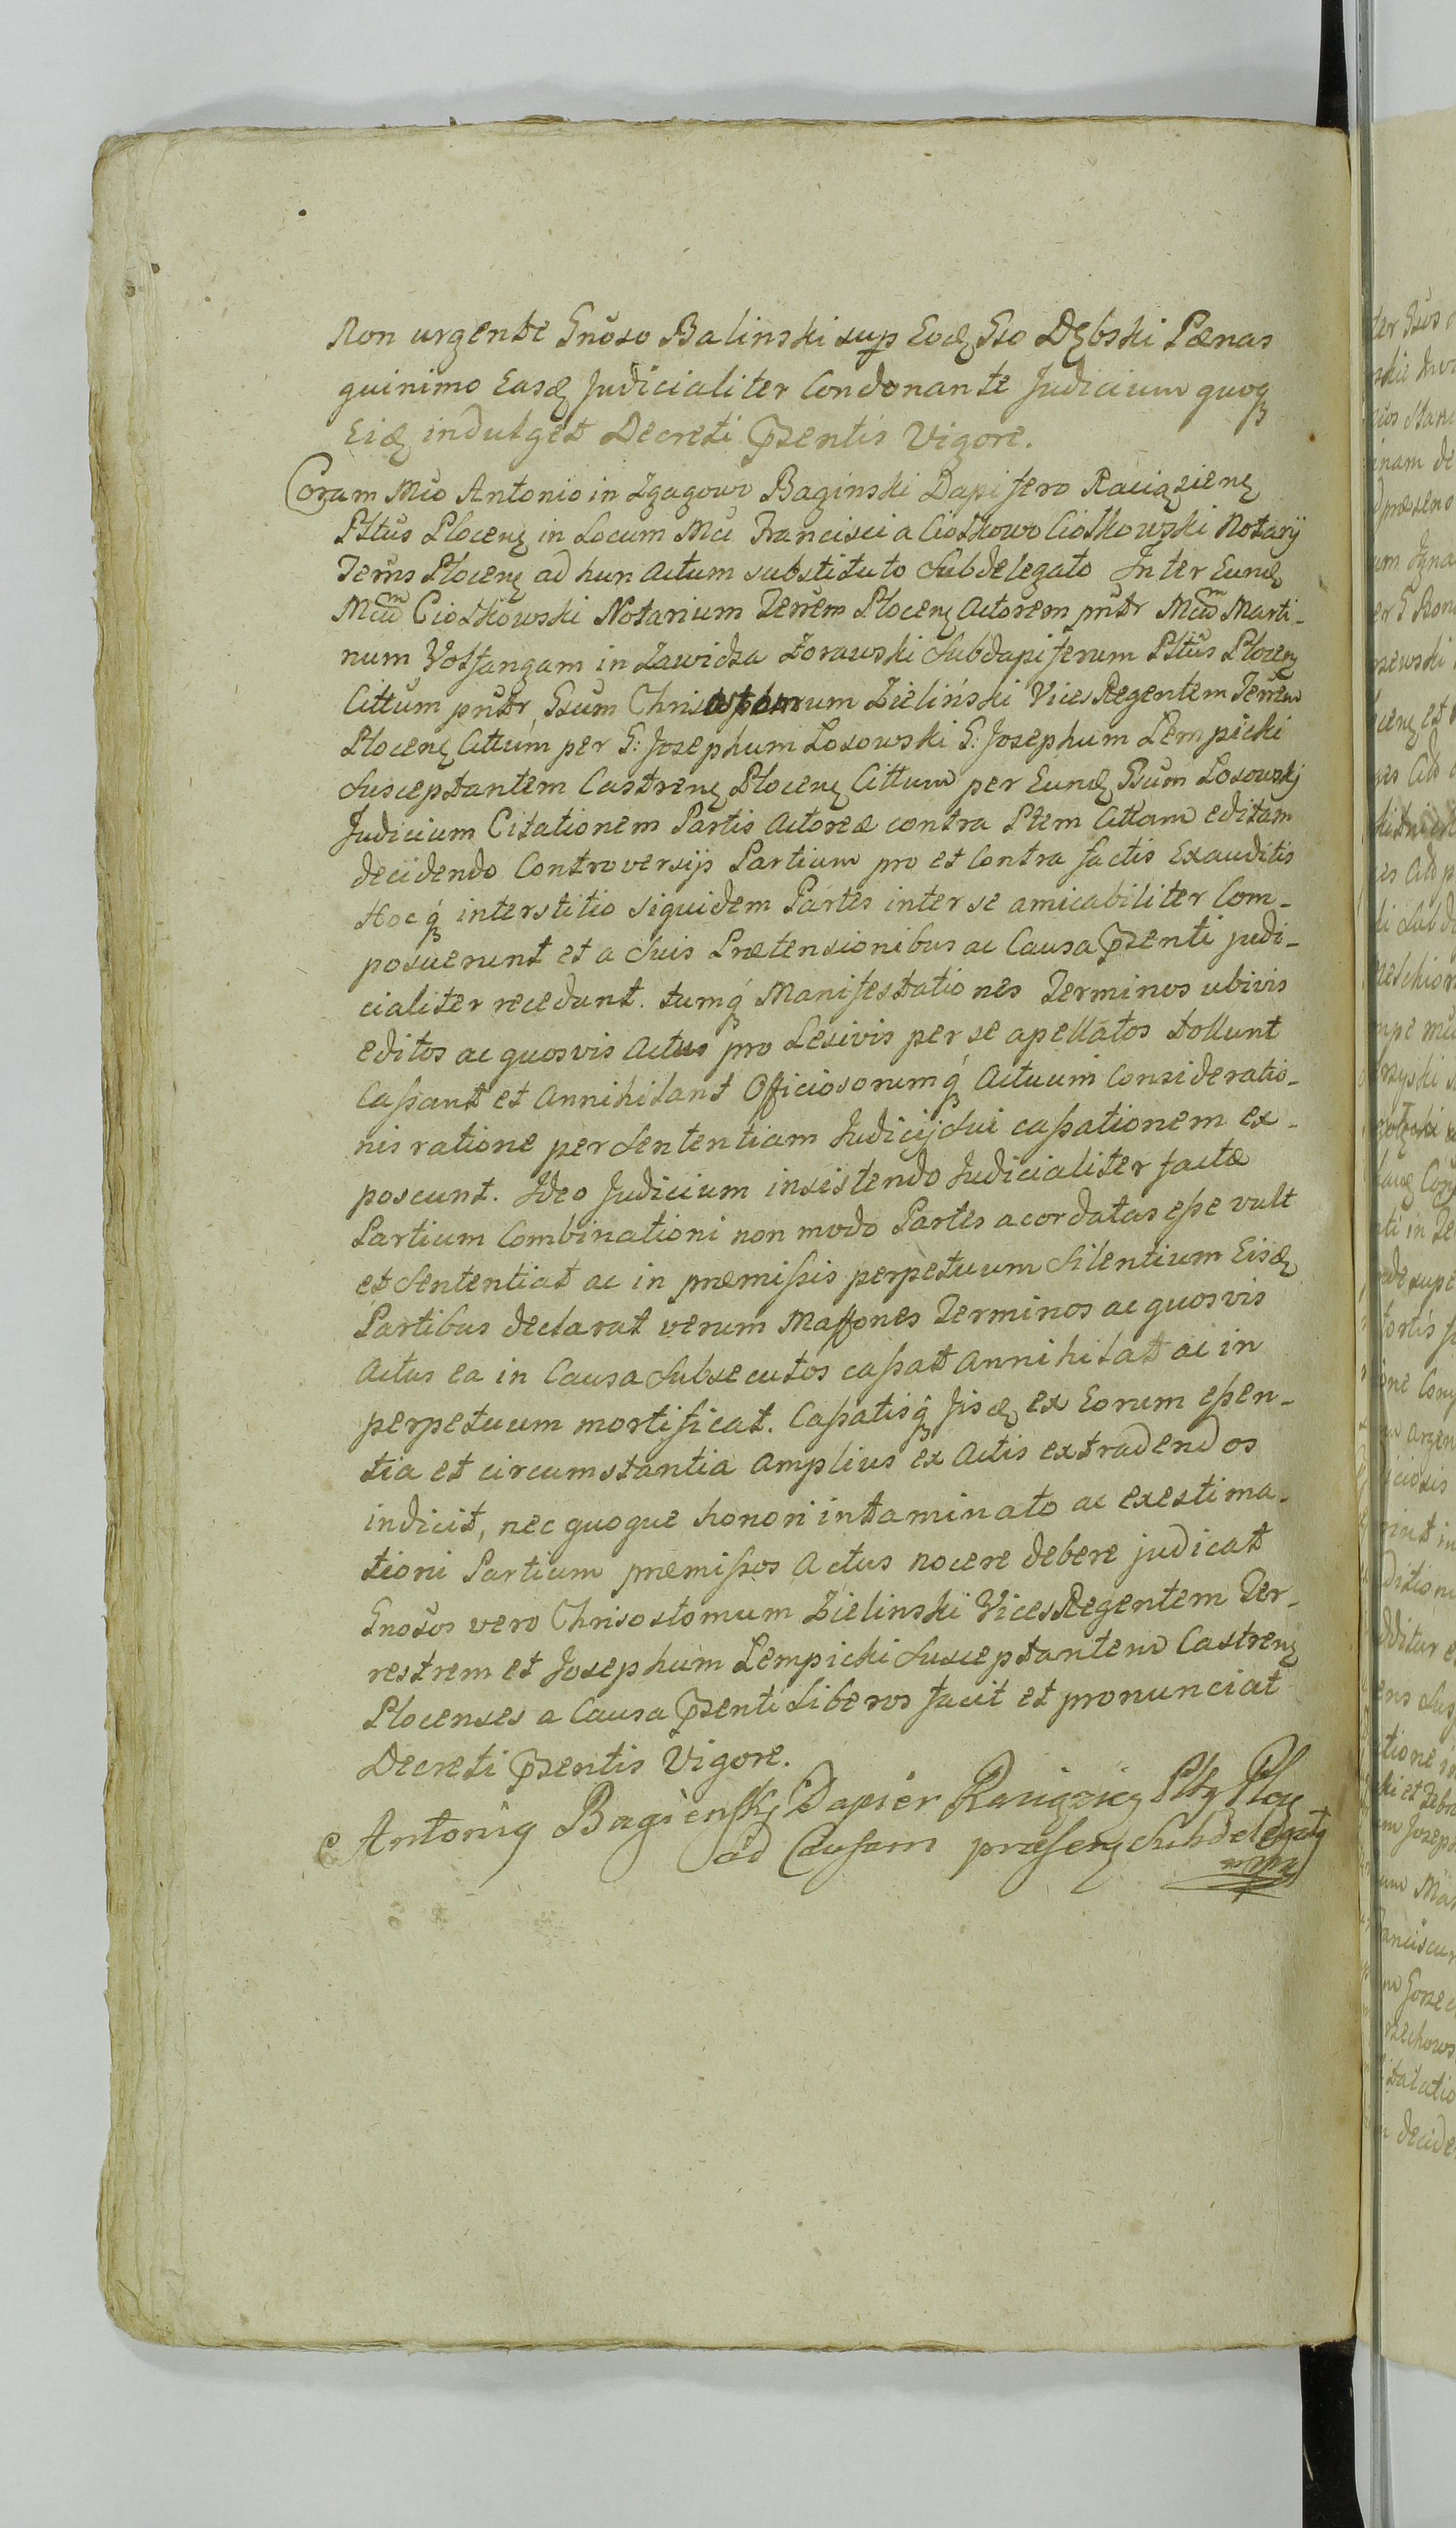 Non urgente Gnoso Balinski sup Eodę Gso Dębski Pœnas
quinimo Easdę Judicialiter Condonante Judicium quoqꝫ
Eidę indulget Decreti Pzentis Vigore.
Coram Mco Antonio in Zgagowo Baginski Dapifero Raciązienę
Pltus Plocenę in Locum Mci Francisci a Ciołkowo Ciołkowski Notarij
Terris Plocenę ad hun actum substituto Subdelegato Inter Eundę
Mcum Ciołkowski Notarium Terrem Plocenę Actorem pnttr Mcum Marti-
num Volfangam in Zawidza Zorawski Subdapiferum Pltus Plocenę
Cittum pnttr, Gsum Chrisostomum Zieliński Vices Regentem Terrem
Plocenę Cittum per G: Josephum Losowski G: Josephum Lempicki
Susceptantem Castrenę Plocenę Cittum per Eundę Gsum Losowskj
Judicium Citationem Partis Actoreæ contra Ptem Cittam editam
decidendo Controversijs Partium pro et Contra factis Exauditis
Hocqꝫ interstitio siquidem Partes inter se amicabiliter Com-
posuerunt et a Suis Prætensionibus ac Causa Pzenti judi-
cialiter recedunt. tumqꝫ Manifestationes Terminos ubivis
editos ac quosvis Actus pro Lesivis per se apellatos tollunt
Cassant et Annihilant Officiosorumqꝫ Actuum Consideratio-
nis ratione per Sententiam Judicij Sui cassationem ex-
poscunt. Ideo Judicium insistendo Judicialiter factæ
Partium Combinationi non modo Partes acordatas esse vult
et Sententiat ac in præmissis perpetuum Silentium Eisdę
Partibus declarat verum Maffones Terminos ac quosvis
Actus ea in Causa Subsecutos cassat Annihilat ac in
perpetuum mortificat. Cassatisqꝫ Iisdę ex Eorum essen-
tia et circumstantia amplius ex Actis extradendos
indicit, nec quoque honori intaminato ac exestima-
tioni Partium præmissos Actus nocere debere judicat
Gnosos vero Chrisostomum Zielinski Vices Regentem Ter-
restrem et Josephum Lempicki Susceptantem Castrenę
Plocenses a Causa Pzenti Liberos facit et pronunciat
Decreti Pzentis Vigore.
Antonig Bagienskj Dapier Raciązieę Pltg Plocę
ad Causam præsenę Subdelegatg
mpp